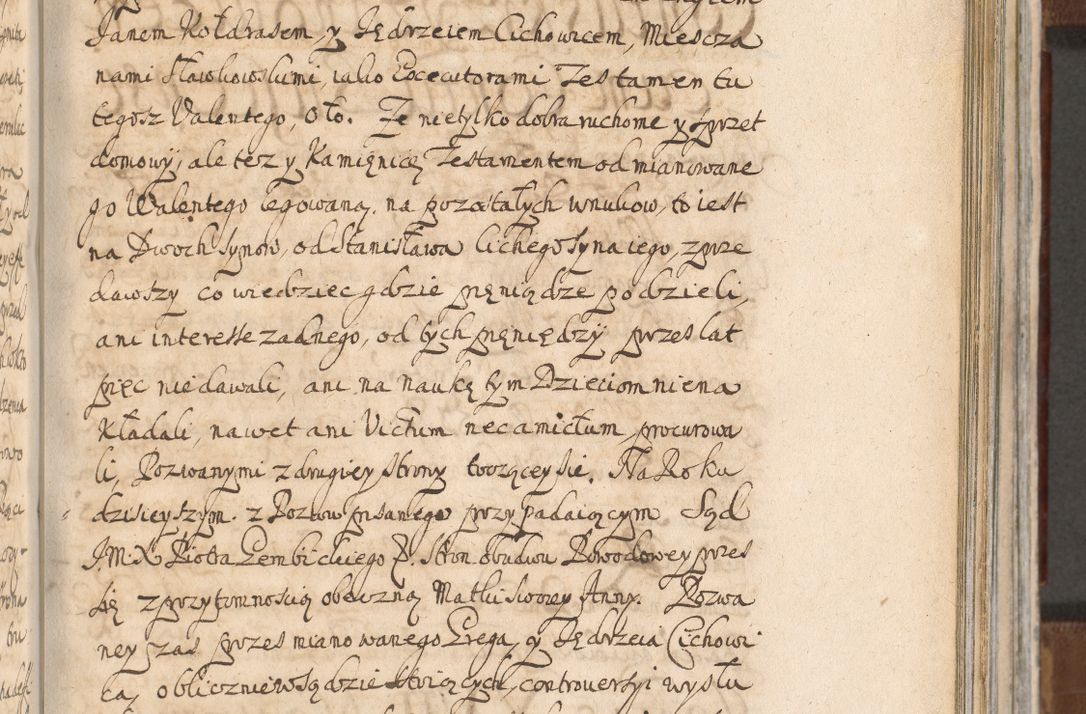 Janem Kołdrasem, y Jędrzeiem Cichowicem, Miescza
nami Sławkowskimi, iako Excecutorami Testamentu
tegosz Valentego, Oto. Ze nietylko dobra ruchome y sprzet
domowÿ, ale tesz y Kamięnicę Testamentem odmianowane
go Walentego legowaną, na pozostałych wnukow, to iest
na Dwoch synow, od Stanisława Cichego syna iego, zprze
dawszy co wiedziec gdzie pęniądze podzieli,
ani interesse zadnego, od tych pęniędzÿ przes lat
pięc nie dawali, ani na naukę tym Dzieciom niena
kładali, nawet ani Victum nec amictum procurowa
li, Pozwanymi z drugiey strony toczącey się. Na Roku
dzisieyszym z Pozwu pisanego przypadaiącym Sąd
J.M.X. Piotra Gembickiego P. stron obudwu Powodowey przes
się z przytomnością obeczną Matki swoey Anny. Pozwa
ney zas przes mianowanego Grega, y Jędrzeia Cichowi
ca, obliczniewsądzie stoiących, controversyi wysłu